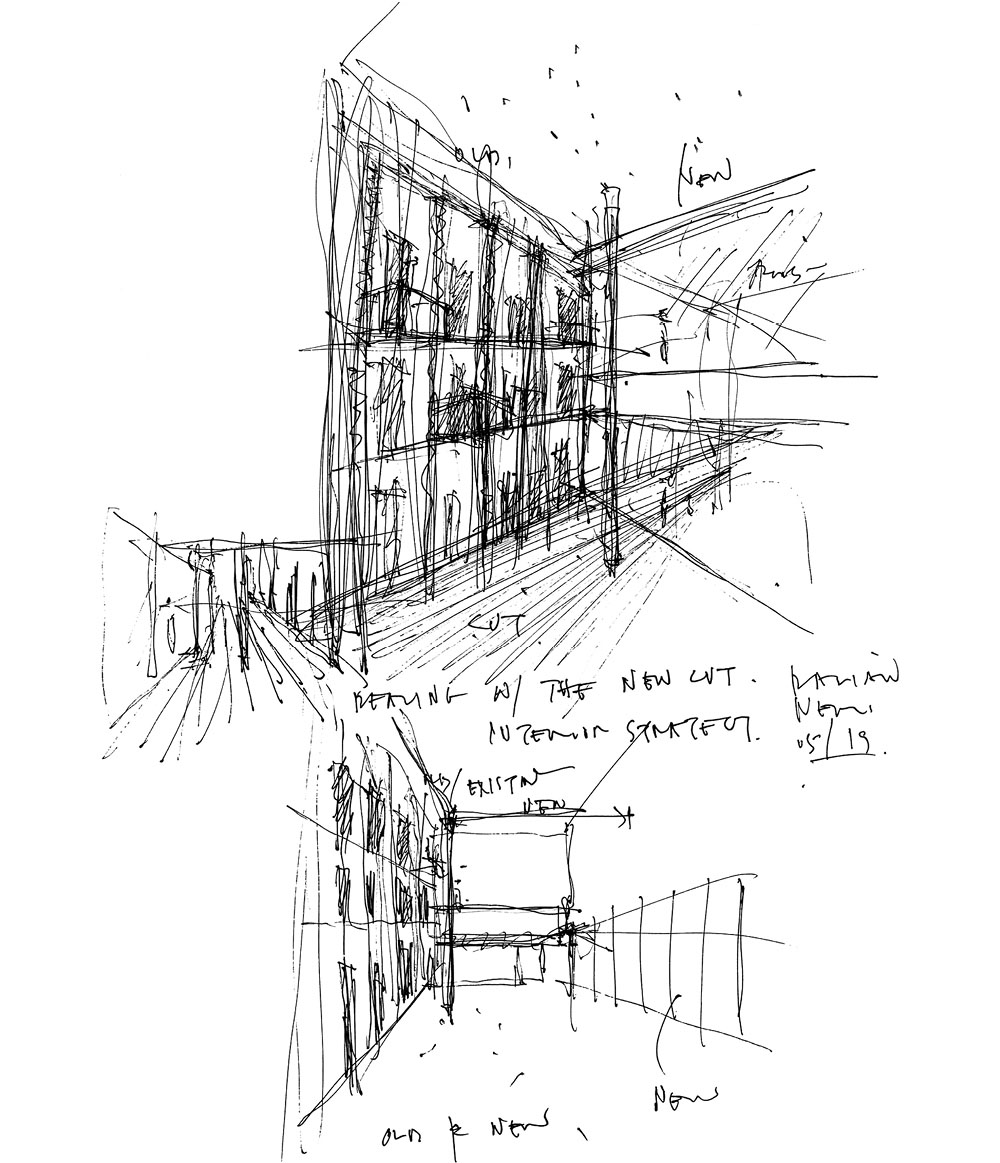 OLD,
NEW
CUT
DEALING W/ THE NEW CUT.
INTERIOR STRATEGY.
DALIAN
NEW.
05/19.
OLD/EXISTING
NEW
NEW
OLD & NEW